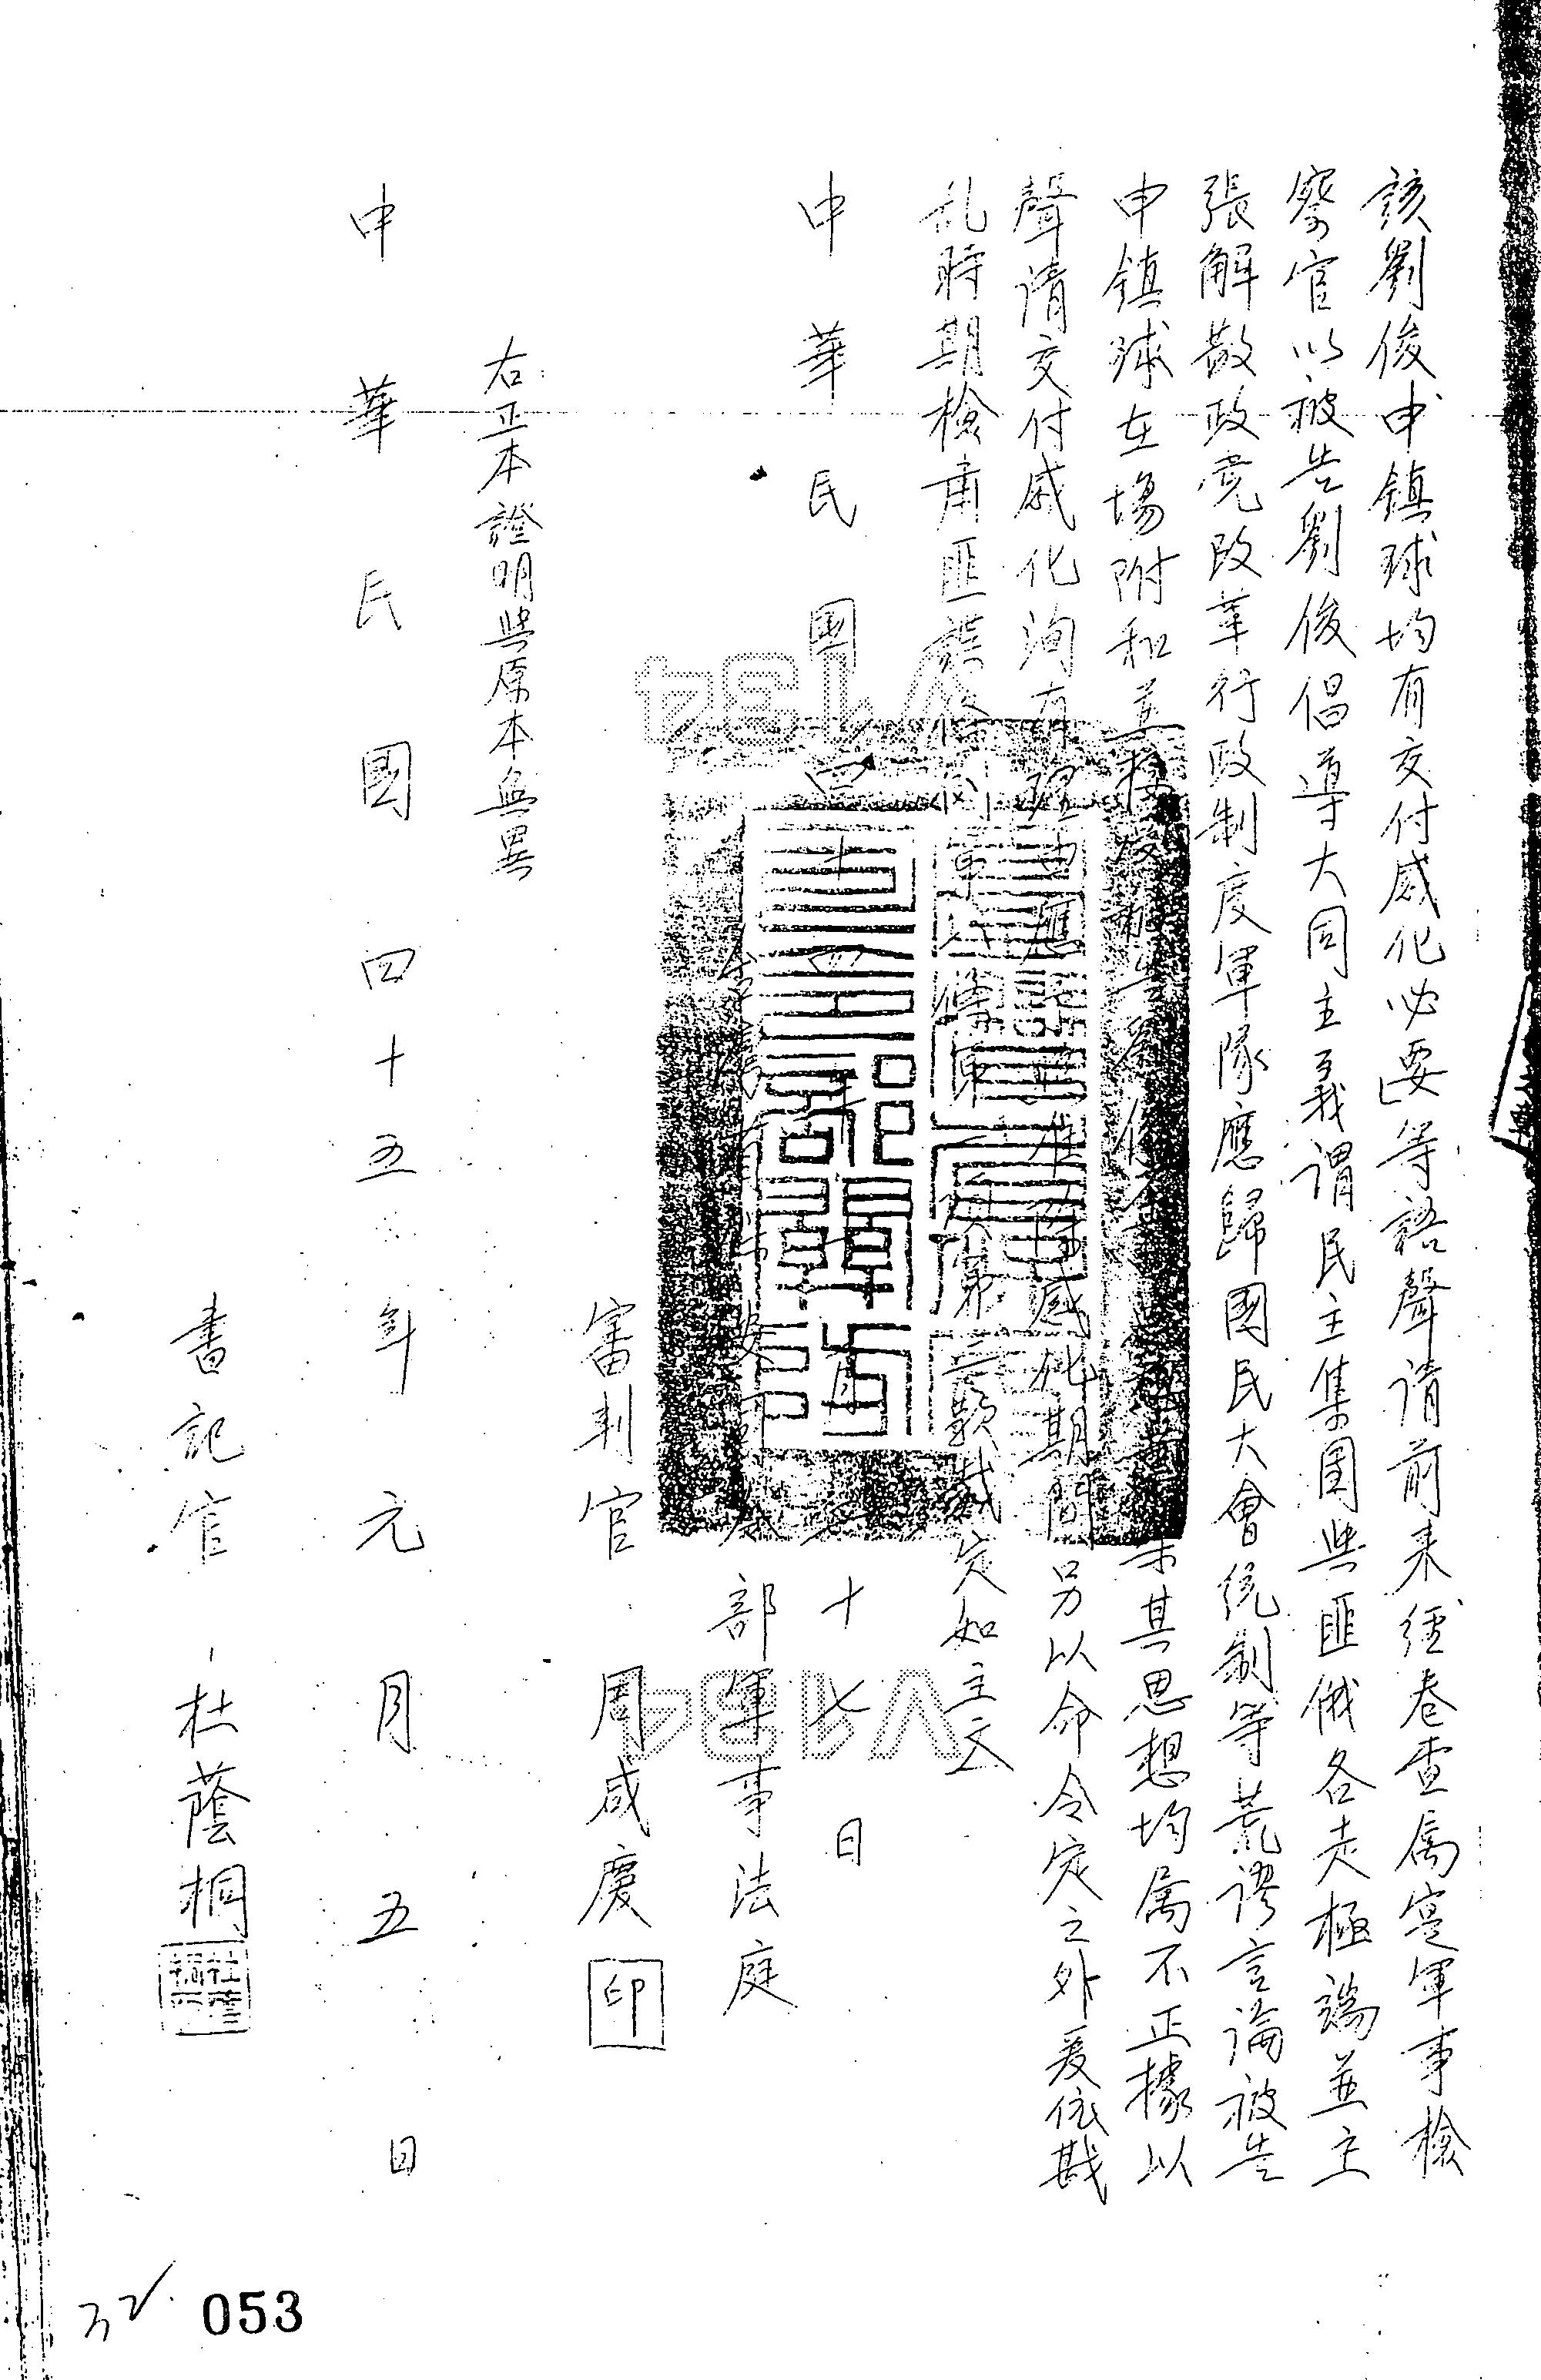 該劉俊申鎮球均有交付感化必要」等語聲请前来經卷查属寔軍事檢
察官以被告劉俊倡導大同主義谓民主集团與匪俄各走極端並主
張解散政党改革行政制度軍隊應歸國民大會统制等荒謬言論被告
申鎮球在場附和並 其思想均属不正據以
聲请交付感化洵有理由應 准 感化期間另以命令定之外爰依戡
乱時期檢肅匪諜條例 第二款裁定如主文
中華民國四十四年十 月 十七日
台灣省 保 安司令部軍事法庭
審判官 周咸慶 印
右正本證明與原本無異
中華民國四十五年元月五日
書記官 杜蔭桐
053